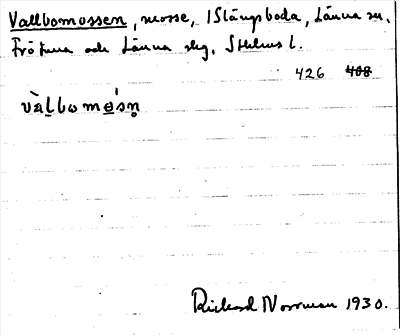 Vallbomossen, mosse, 1 Slängsboda, Länna sn,
Frötuna och Länna skg, Sthlms l.
426 408
vàlbωmωsn̥
Rickard Norrman 1930.